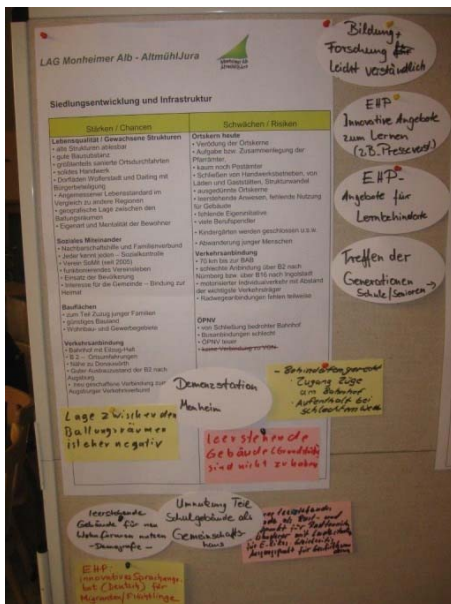 LAG Monheimer Alb - AltmühlJura
Siedlungsentwicklung und Infrastruktur
Stärken / Chancen
Lebensqualität / Gewachsene Strukturen
- alte Strukturen ablesbar
- gute Bausubstanz
- größtenteils sanierte Ortsdurchfahrten
- solides Handwerk
- Dorfläden Wolferstadt und Daiting mit
Bürgerbeteiligung
- Angemessener Lebensstandard im
Vergleich zu andere Regionen
- geografische Lage zwischen den
Ballungsräumen
- Eigenart und Mentalität der Bewohner
Soziales Miteinander
- Nachbarschaftshilfe und Familienverbund
- Jeder kennt jeden - Sozialkontrolle
- Verein SoMit (seit 2005)
- funktionierendes Vereinsleben
- Einsatz der Bevölkerung
- Interesse für die Gemeinde - Bindung zur
Heimat
Bauflächen
- zum Teil Zuzug junger Familien
- günstiges Bauland
- Wohnbau- und Gewerbegebiete
Verkehrsanbindung
- Bahnhof mit Eilzug-Halt
- B 2 - Ortsumfahrungen
- Nähe zu Donauwörth
- Guter Ausbauzustand der B2 nach
Augsburg
- neu geschaffene Verbindung zum
Augsburger Verkehrsverbund
Schwächen / Risiken
Ortskern heute
- Verödung der Ortskerne
- Aufgabe bzw. Zusammenlegung der
Pfarrämter
- kaum noch Postämter
- Schließen von Handwerksbetrieben, von
Läden und Gaststätten, Strukturwandel
- ausgedünnte Ortskerne
- leerstehende Anwesen, fehlende Nutzung
für Gebäude
- fehlende Eigeninitiative
- viele Berufspendler
- Kindergärten werden geschlossen u.s.w.
- Abwanderung junger Menschen
Verkehrsanbindung
- 70 km bis zur BAB
- schlechte Anbindung über B2 nach
Nürnberg bzw. über B16 nach Ingolstadt
- motorisierter Individualverkehr mit Abstand
der wichtigste Verkehrsträger
- Radweganbindungen fehlen teilweise
ÖPNV
- von Schließung bedrohter Bahnhof
- Busanbindungen schlecht
- ÖPNV teuer
Bildung +
Forschung für
Leicht verständlich
EHP
Innovative Angebote
zum Lernen
EHP-
Angebote für
Lernbehinderte
Treffen der
Generationen
Schule/Senioren →
- Behindertengerecht
Zugang Züge
am Bahnhof
- Aufenthalt bei
schlechtem Wetter
Demenzstation
Monheim
Lage zwischen den
Ballungsräumen
ist eher negativ
leerstehende
Gebäude
sind nicht zu haben
leerstehende
Gebäude für neue
Wohnformen nutzen
- Demografie -
Umnutzung Teile
Schulgebäude als
Gemeinschafts
haus
EHP-
innovatives Sprachange-
bot (Deutsch) für
Migranden/Flüchtlinge